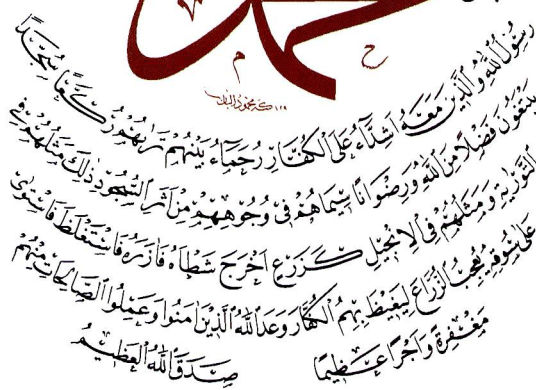 محمد
رسول الله والذين معه اشداء على الكفار رحماء بينهم تريهم ركعا سجدا
يبتغون فضلا من الله ورضوانا سيماهم في وجوههم من اثر السجود ذلك مثلهم في
التورية ومثلهم في الانجيل كزرع اخرج شطاه فازره فاستغلظ فاستوى
على سوقه يعجب الزراع ليغيظ بهم الكفار وعد الله الذين امنوا وعملوا الصالحات منهم
مغفرة واجرا عظيما
صدق الله العظيم